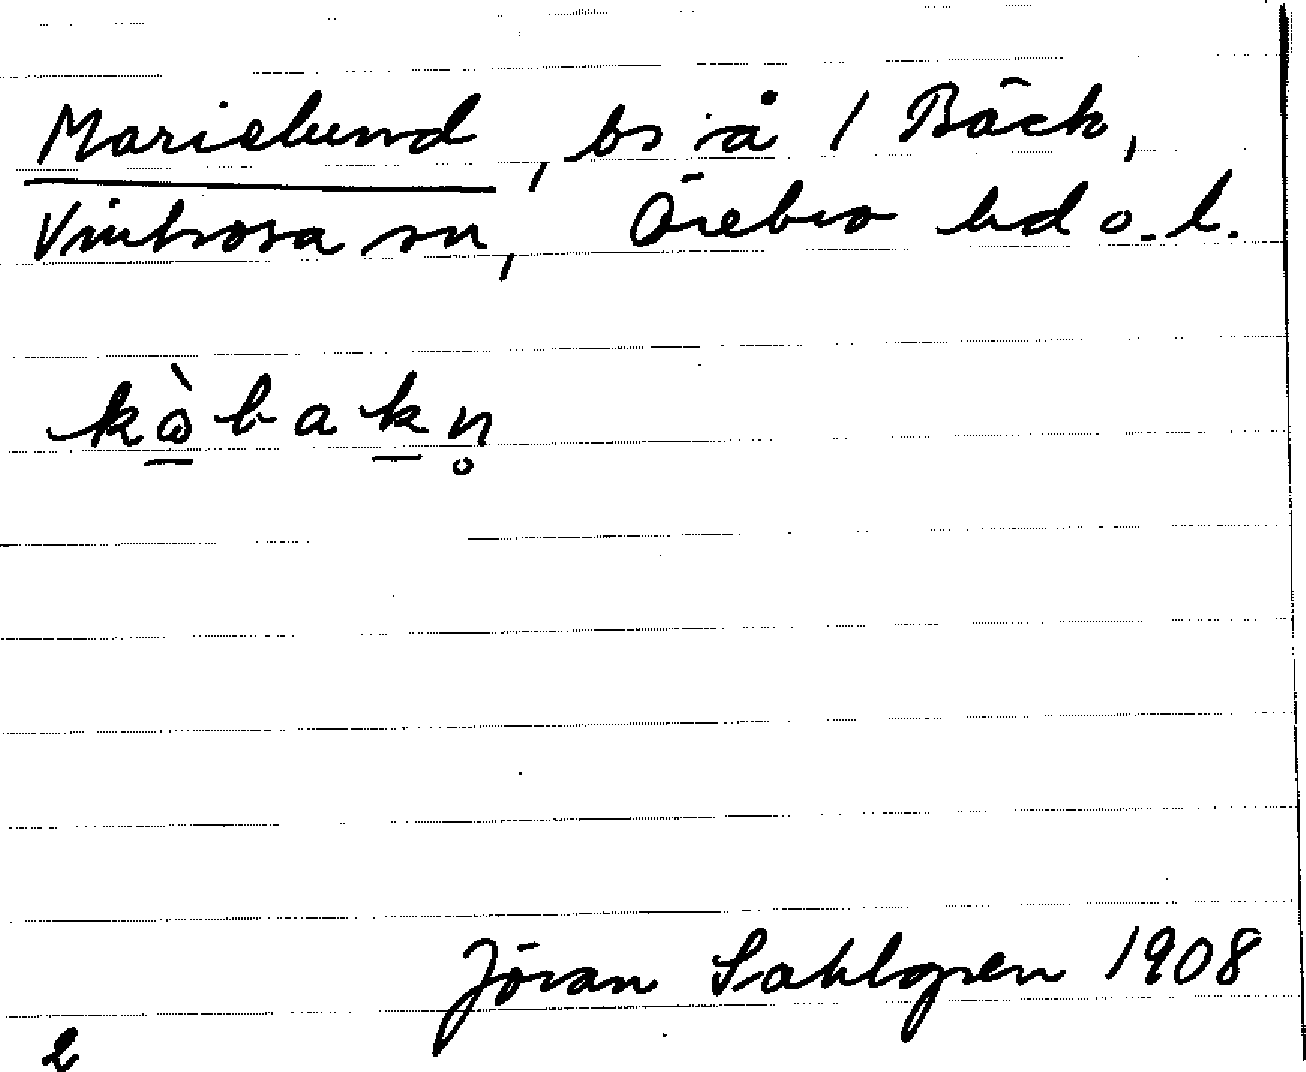 Marielund, bs å 1 Bäck,
Vintrosa sn, Örebro hd o.l.
kò̱baḵn̥
Jöran Sahlgren 1908
2